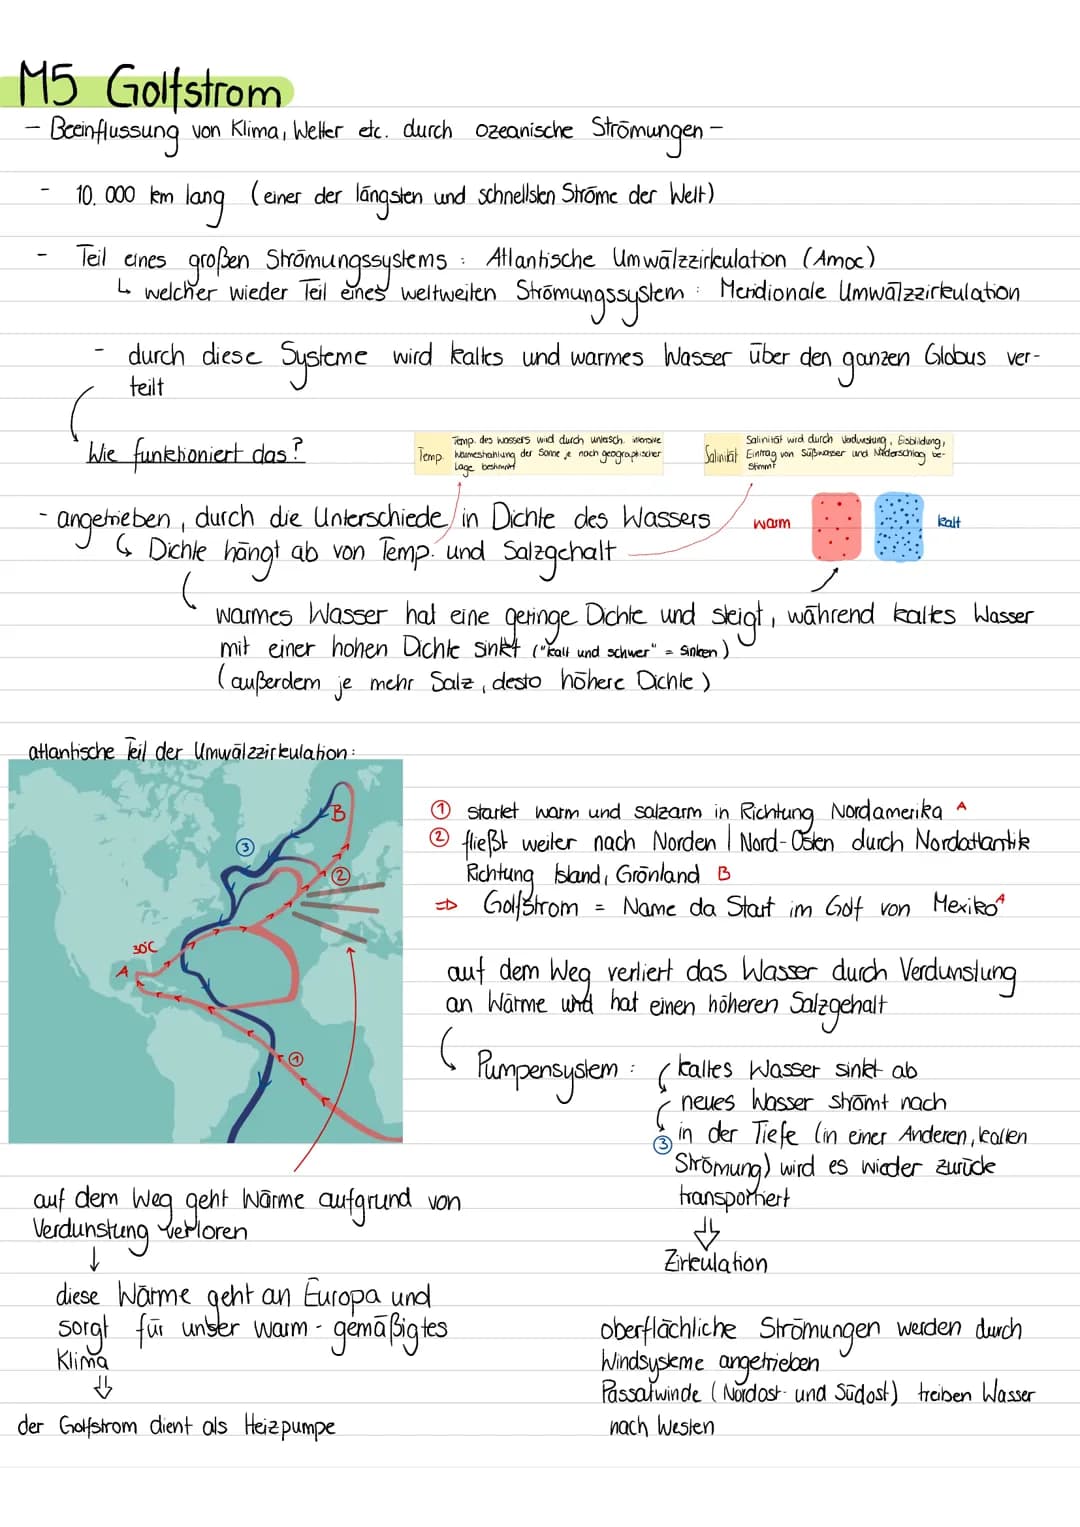 M5 Golfstrom
- Beeinflussung von Klima, Wetter etc. durch ozeanische Strömungen -
- 10.000 km lang (einer der längsten und schnellsten Ströme der Welt)
- Teil eines großen Strömungssystems: Atlantische Umwälzzirkulation (Amoc)
↳ welcher wieder Teil eines weltweiten Strömungssystem: Meridionale Umwälzzirkulation
- durch diese Systeme wird kaltes und warmes Wasser über den ganzen Globus ver-
teilt
Wie funktioniert das?
Temp.
Temp. des Wassers wird durch untersch. intensive
Wärmestrahlung der Sonne je nach geographischer
Lage bestimmt
Salinität
Salinität wird durch Verdunstung, Eisbildung,
Eintrag von Süßwasser und Niederschlag be-
stimmt
- angetrieben, durch die Unterschiede in Dichte des Wassers
↳ Dichte hängt ab von Temp. und Salzgehalt
warm
kalt
warmes Wasser hat eine geringe Dichte und steigt, während kaltes Wasser
mit einer hohen Dichte sinkt ("kalt und schwer" = sinken)
(außerdem je mehr Salz, desto höhere Dichte)
atlantische Teil der Umwälzzirkulation:
B
3
2
30°C
A
1
① startet warm und salzarm in Richtung Nordamerika A
② fließt weiter nach Norden | Nord-Osten durch Nordatlantik
Richtung Island, Grönland B
⇒ Golfstrom = Name da Start im Golf von Mexiko A
auf dem Weg verliert das Wasser durch Verdunstung
an Wärme und hat einen höheren Salzgehalt
Pumpensystem:
kaltes Wasser sinkt ab
neues Wasser strömt nach
③ in der Tiefe (in einer Anderen, kalten
Strömung) wird es wieder zurück
transportiert
⇓
Zirkulation
auf dem Weg geht Wärme aufgrund von
Verdunstung verloren
↓
diese Wärme geht an Europa und
sorgt für unser warm-gemäßigtes
Klima
⇓
der Golfstrom dient als Heizpumpe
oberflächliche Strömungen werden durch
Windsysteme angetrieben
Passatwinde (Nordost- und Südost) treiben Wasser
nach Westen